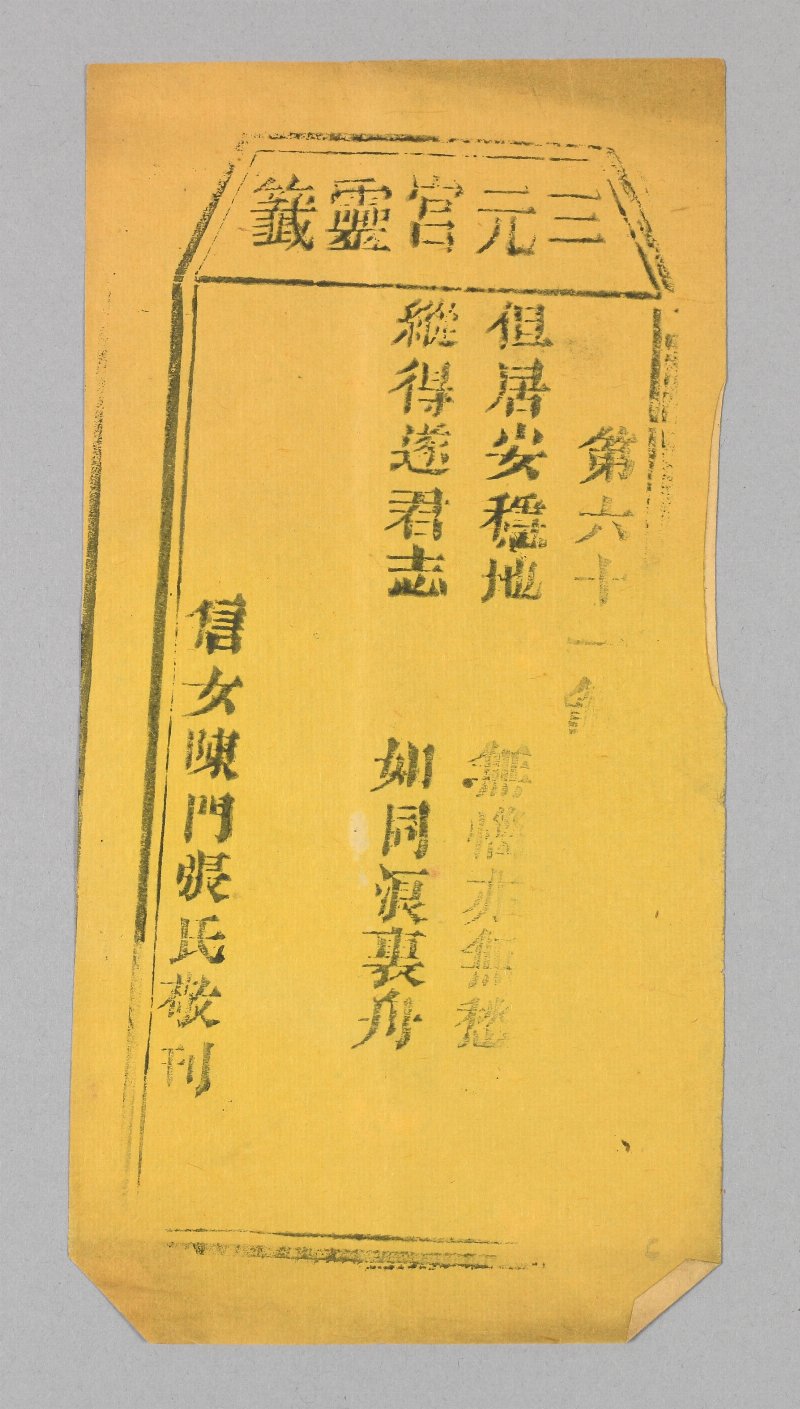 三元宮靈籤
第六十一
但居安穩地　無憂亦無愁
縱得遂君志　如同浪裏舟
信女陳門張氏敬刊